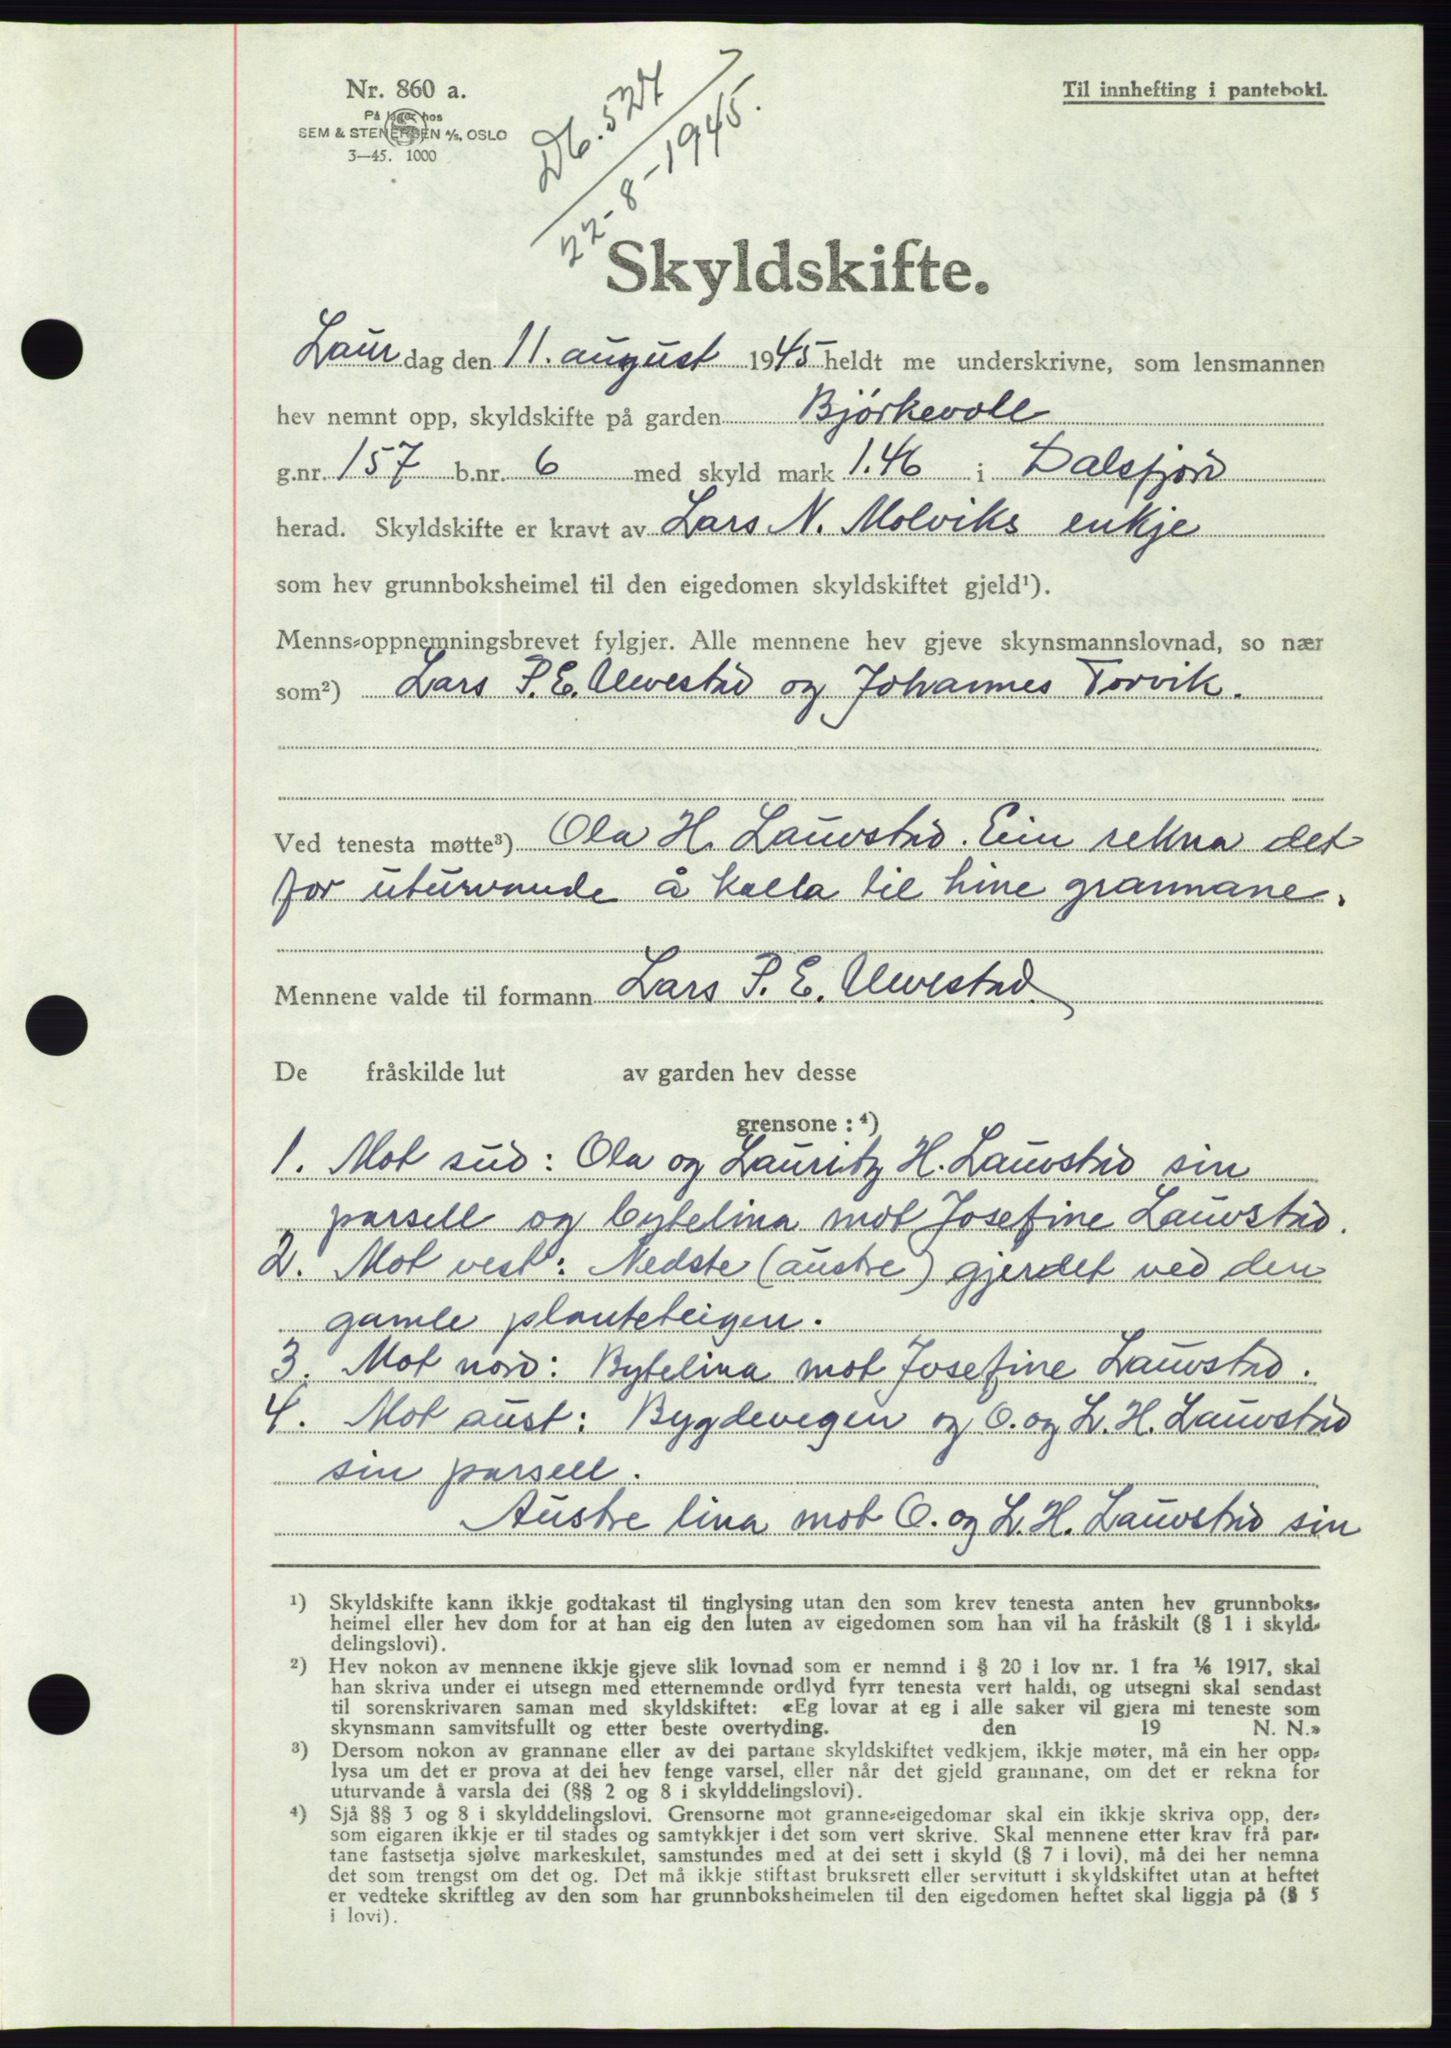 Nr. 860 a.
På lager hos
SEM & STENERSEN A/S, OSLO
3—45. 1000
Til innhefting i panteboki.
22-8-1945.
Skyldskifte.
Laurdag den 11. august 1945 heldt me underskrivne, som lensmannen
hev nemnt opp, skyldskifte på garden Bjørkevoll
g.nr. 157 b.nr. 6 med skyld mark 1.46 i Dalsfjord
herad. Skyldskifte er kravt av Lars N. Molviks enkje
som hev grunnboksheimel til den eigedomen skyldskiftet gjeld¹).
Menns-oppnemningsbrevet fylgjer. Alle mennene hev gjeve skynsmannslovnad, so nær
som²) Lars P. E. Ulvestad og Johannes Torvik.
Ved tenesta møtte³) Ola H. Lauvstad. Ein rekna det
for uturvande å kalla til hine grannane.
Mennene valde til formann Lars P. E. Ulvestad
De fråskilde lut av garden hev desse
grensone : ⁴)
1. Mot sud: Ola og Lauritz H. Lauvstad sin
parsell og bytelina mot Josefine Lauvstad.
2. Mot vest: Nedste (austre) gjerdet ved den
gamle planteteigen.
3. Mot nord: Bytelina mot Josefine Lauvstad.
4. Mot aust: Bygdevegen og O. og L. H. Lauvstad
sin parsell.
Austre lina mot O. og L. H. Lauvstad sin
¹) Skyldskifte kann ikkje godtakast til tinglysing utan den som krev tenesta anten hev grunnboks-
heimel eller hev dom for at han eig den luten av eigedomen som han vil ha fråskilt (§ 1 i skyld-
delingslovi).
²) Hev nokon av mennene ikkje gjeve slik lovnad som er nemnd i § 20 i lov nr. 1 fra ⅙ 1917, skal
han skriva under ei utsegn med etternemnde ordlyd fyrr tenesta vert haldi, og utsegni skal sendast
til sorenskrivaren saman med skyldskiftet: «Eg lovar at eg i alle saker vil gjera mi teneste som
skynsmann samvitsfullt og etter beste overtyding. den 19 N. N.»
³) Dersom nokon av grannane eller av dei partane skyldskiftet vedkjem, ikkje møter, må ein her opp-
lysa um det er prova at dei hev fenge varsel, eller når det gjeld grannane, om det er rekna for
uturvande å varsla dei (§§ 2 og 8 i skylddelingslovi).
⁴) Sjå §§ 3 og 8 i skylddelingslovi. Grensorne mot granne-eigedomar skal ein ikkje skriva opp, der-
som eigaren ikkje er til stades og samtykkjer i det som vert skrive. Skal mennene etter krav frå par-
tane fastsetja sjølve markeskilet, samstundes med at dei sett i skyld (§ 7 i lovi), må dei her nemna
det som trengst om det og. Det må ikkje stiftast bruksrett eller servitutt i skyldskiftet utan at heftet
er vedteke skriftleg av den som har grunnboksheimelen til den eigedomen heftet skal liggja på (§ 5
i lovi).